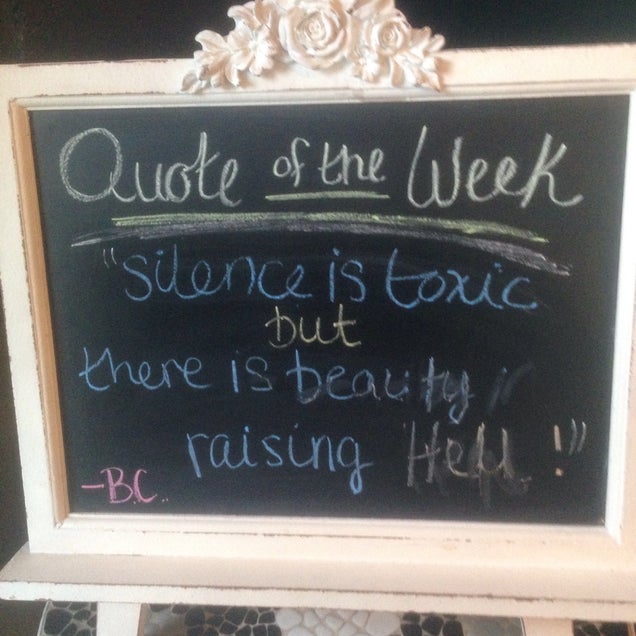 Quote of the Week
"silence is toxic
but
there is beauty
raising Hell!"
-B.C.